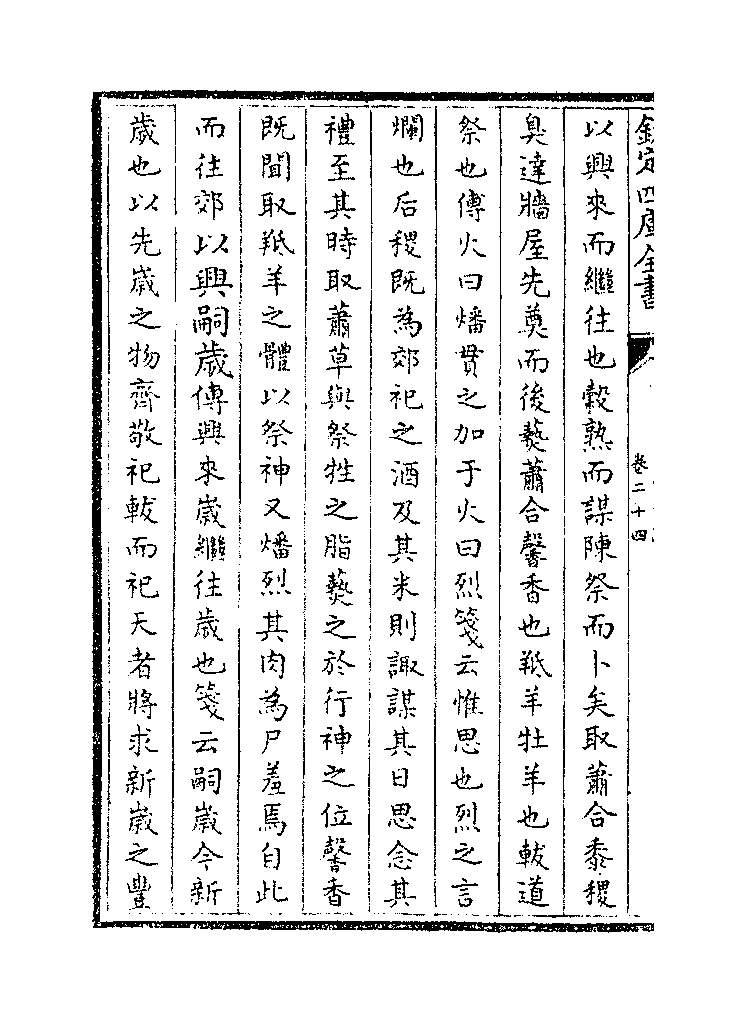 欽定四庫全書
卷二十四
以興來而繼往也穀熟而謀陳祭而卜矣取蕭合黍稷
臭達牆屋先奠而後爇蕭合馨香也羝羊牡羊也軷道
祭也傅火曰燔貫之加于火曰烈箋云惟思也烈之言
爛也后稷既為郊祀之酒及其米則諏謀其日思念其
禮至其時取蕭草與祭牲之脂爇之於行神之位馨香
既聞取羝羊之體以祭神又燔烈其肉為尸羞焉自此
而往郊以興嗣歲傳興來歲繼往歲也箋云嗣歲今新
歲也以先歲之物齊敬祀軷而祀天者將求新歲之豐